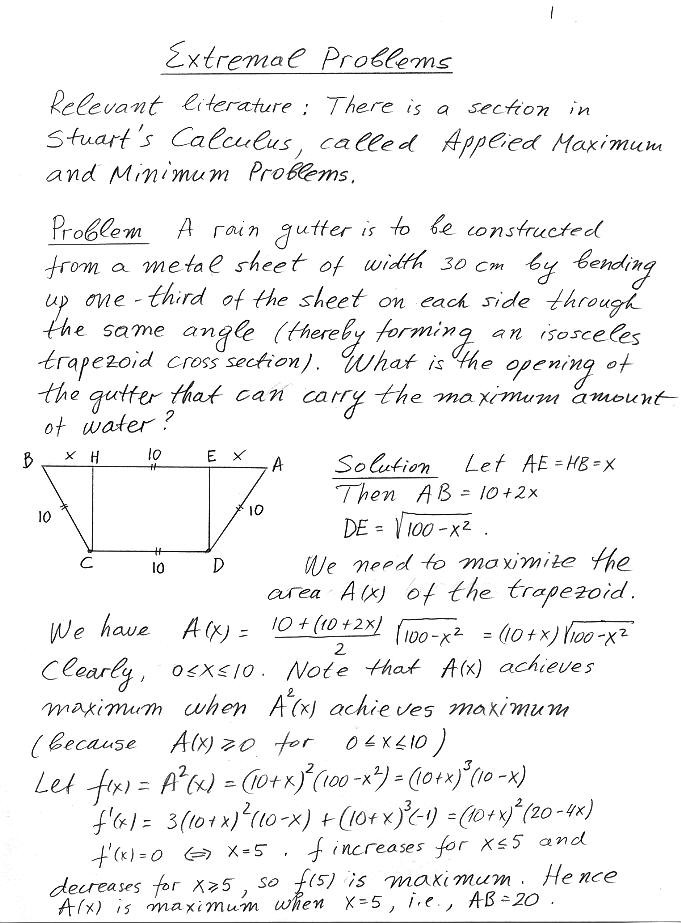 1
Extremal Problems
Relevant literature: There is a section in
Stuart's Calculus, called Applied Maximum
and Minimum Problems.
Problem A rain gutter is to be constructed
from a metal sheet of width 30 cm by bending
up one-third of the sheet on each side through
the same angle (thereby forming an isosceles
trapezoid cross section). What is the opening of
the gutter that can carry the maximum amount
of water?
B x H 10 E x A
10 10
C 10 D
Solution Let AE = HB = x
Then AB = 10 + 2x
DE = √(100 - x²) .
We need to maximize the
area A(x) of the trapezoid.
We have A(x) = (10 + (10 + 2x))/2 √(100 - x²) = (10 + x)√(100 - x²)
Clearly, 0 ≤ x ≤ 10. Note that A(x) achieves
maximum when A²(x) achieves maximum
(because A(x) ≥ 0 for 0 ≤ x ≤ 10)
Let f(x) = A²(x) = (10+x)²(100-x²) = (10+x)³(10-x)
f'(x) = 3(10+x)²(10-x) + (10+x)³(-1) = (10+x)²(20-4x)
f'(x) = 0 ⇔ x = 5 . f increases for x ≤ 5 and
decreases for x ≥ 5, so f(5) is maximum. Hence
A(x) is maximum when x = 5, i.e., AB = 20 .